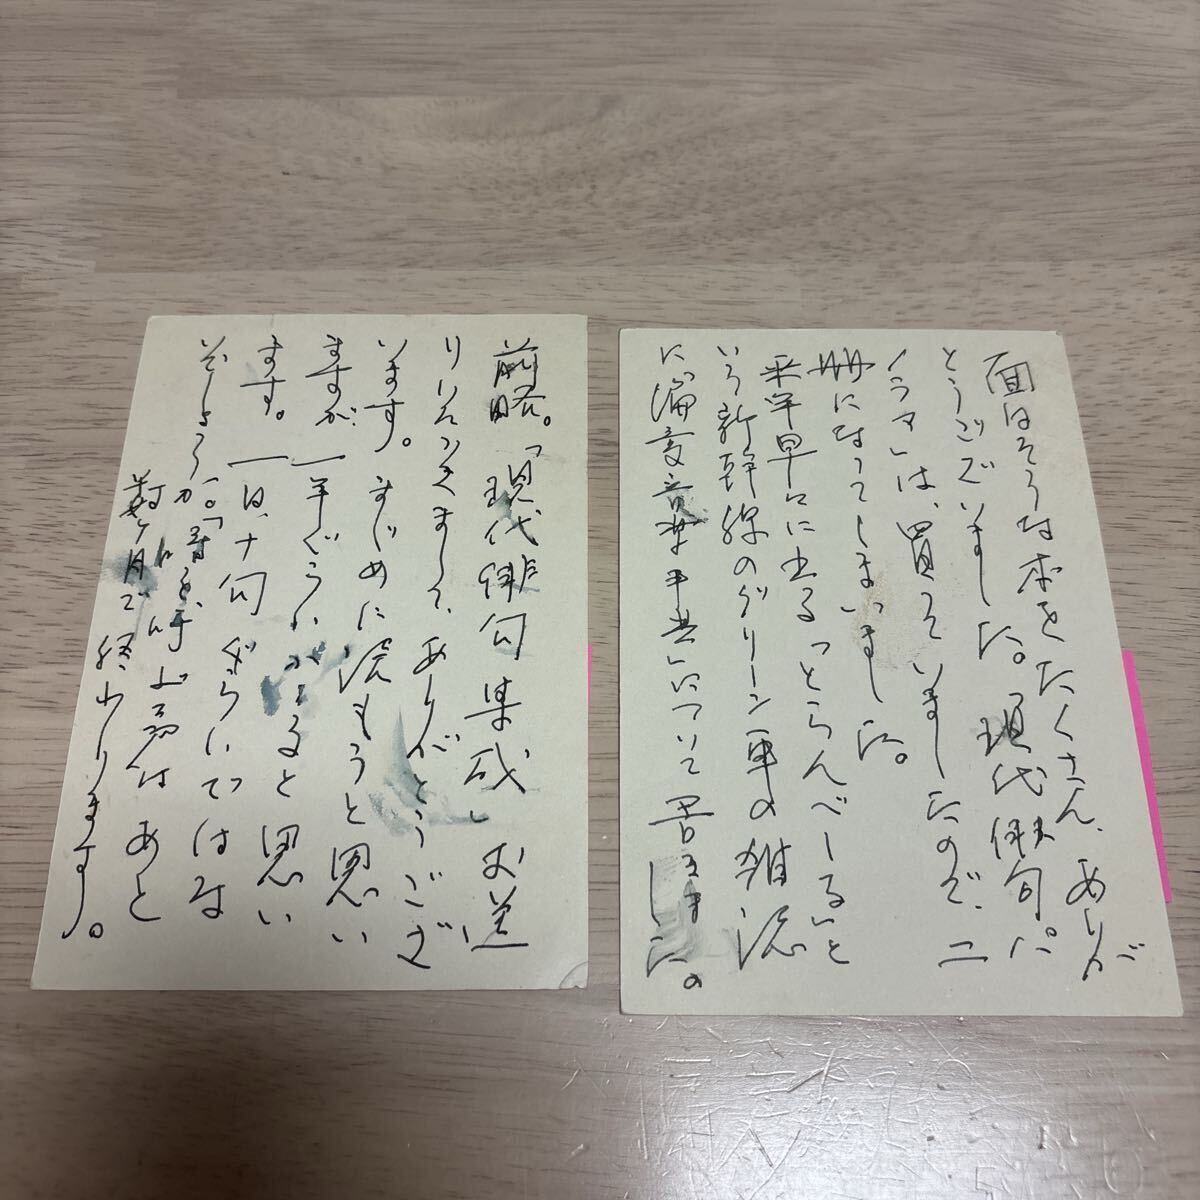 面白そうな本をたくさん、ありが
とうございました。「現代俳句パ
ノラマ」は、買っていましたので、二
冊になってしまいました。
来年早々に出る「とらんべーる」と
いう新幹線のグリーン車の雑誌
に、「偏愛音楽事典」について書きました。
前略。「現代俳句集成」お送
りいただきまして、ありがとうござ
います。まじめに読もうと思い
ますが、一年ぐらいかかると思い
ます。一日、十句ぐらいではな
いでしょうか。「声を呼ぶ
声」はあと
数ヶ月で終わります。